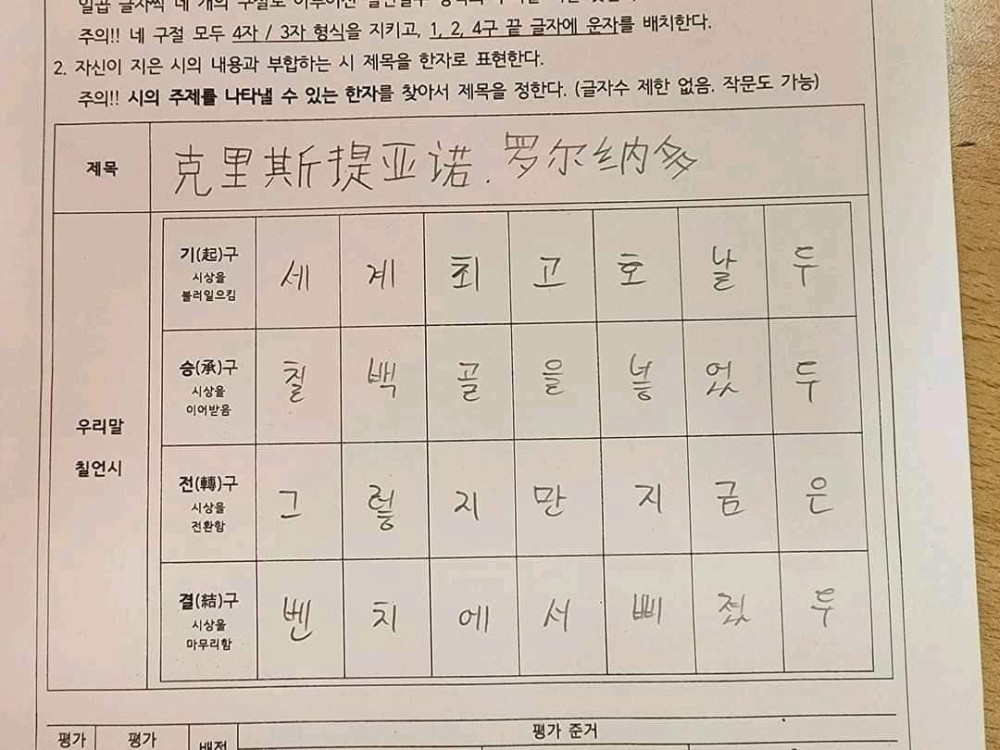 주의!! 네 구절 모두 4자 / 3자 형식을 지키고, 1, 2, 4구 끝 글자에 운자를 배치한다.
2. 자신이 지은 시의 내용과 부합하는 시 제목을 한자로 표현한다.
주의!! 시의 주제를 나타낼 수 있는 한자를 찾아서 제목을 정한다. (글자수 제한 없음. 작문도 가능)
제목
克里斯提亚诺.罗尔纳多
우리말
칠언시
기(起)구
시상을
불러일으킴
세 계 최 고 호 날 두
승(承)구
시상을
이어받음
칠 백 골 을 넣 었 두
전(轉)구
시상을
전환함
그 렇 지 만 지 금 은
결(結)구
시상을
마무리함
벤 치 에 서 삐 졌 두
평가 평가 배점 평가 준거